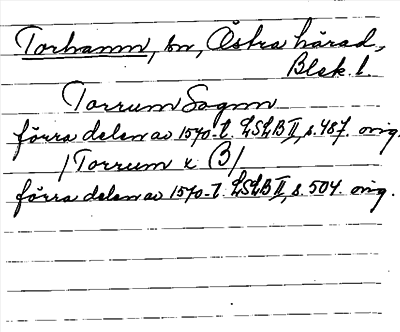 Torhamn, sn, Östra härad,
Blek. l.
Torrum Sognn
förra delen av 1570-t. LSLB II, s. 487. orig.
/Torrum k B/
förra delen av 1570-t. LSLB II, s. 504. orig.